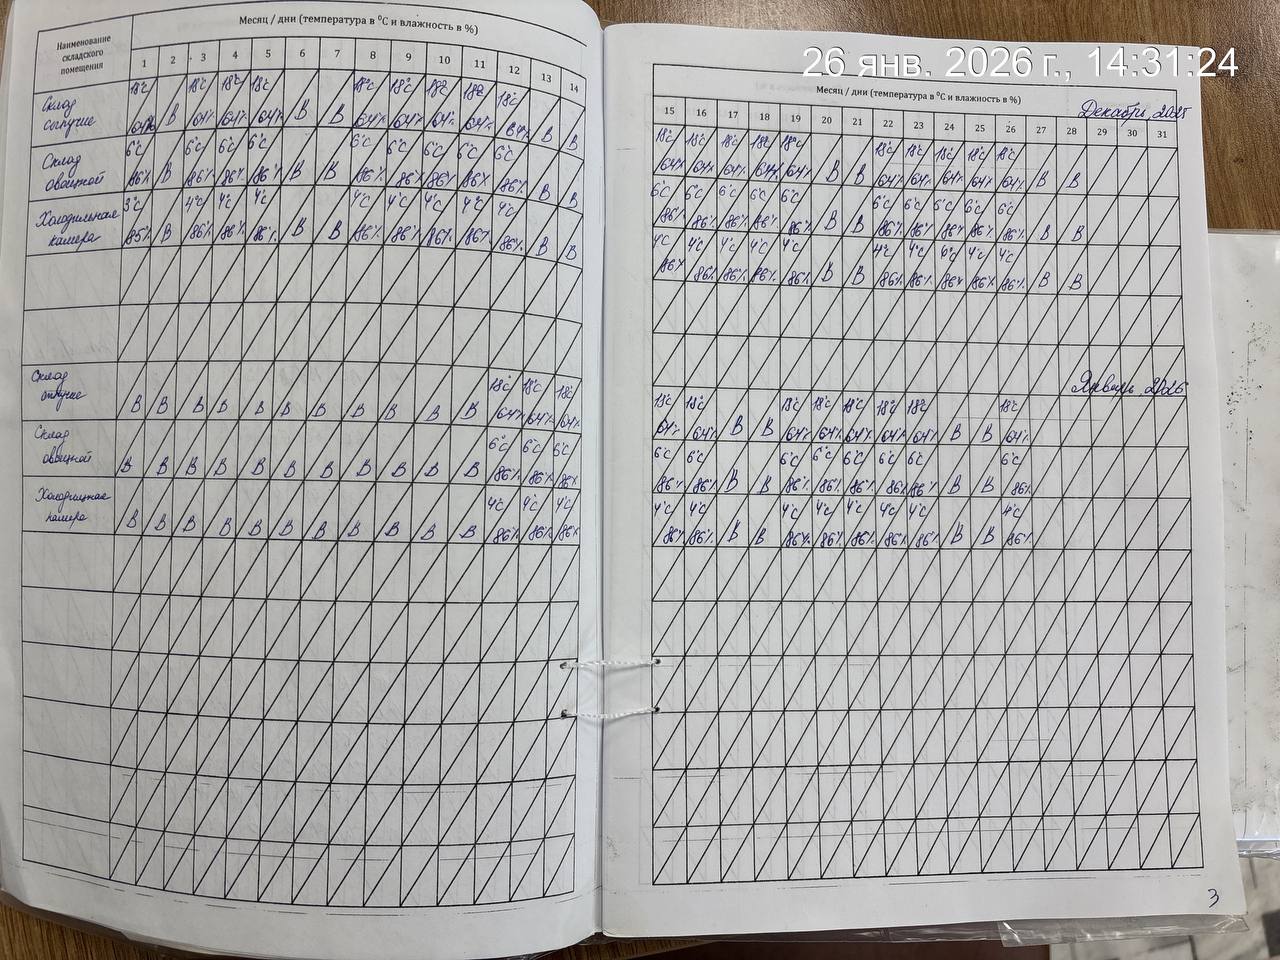 26 янв. 2026 г., 14:31:24
Наименование складского помещения
Месяц / дни (температура в ⁰С и влажность в %)
1 2 3 4 5 6 7 8 9 10 11 12 13 14
Склад
18°С В 18°С 18°С 18°С В В 18°С 18°С 18°С 18°С 18°С В В
64% 64% 64% 64% 64% 64% 64% 64% 64%
Склад овощной
6°С В 6°С 6°С 6°С В В 6°С 6°С 6°С 6°С 6°С В В
86% 86% 86% 86% 86% 86% 86% 86% 86%
Холодильная камера
3°С В 4°С 4°С 4°С В В 4°С 4°С 4°С 4°С 4°С В В
85% 86% 86% 86% 86% 86% 86% 86% 86%
Склад
В В В В В В В В В В В 18°С 18°С 18°С
64% 64% 64%
Склад овощной
В В В В В В В В В В В 6°С 6°С 6°С
86% 86% 86%
Холодильная камера
В В В В В В В В В В В 4°С 4°С 4°С
86% 86% 86%
Месяц / дни (температура в ⁰С и влажность в %)
Декабрь 2025
15 16 17 18 19 20 21 22 23 24 25 26 27 28 29 30 31
18°С 18°С 18°С 18°С 18°С В В 18°С 18°С 18°С 18°С 18°С В В
64% 64% 64% 64% 64% 64% 64% 64% 64% 64%
6°С 6°С 6°С 6°С 6°С В В 6°С 6°С 6°С 6°С 6°С В В
86% 86% 86% 86% 86% 86% 86% 86% 86% 86%
4°С 4°С 4°С 4°С 4°С В В 4°С 4°С 4°С 4°С В В
86% 86% 86% 86% 86% 86% 86% 86% 86% 86%
Январь
18°С 18°С В В 18°С 18°С 18°С 18°С 18°С В В 18°С
64% 64% 64% 64% 64% 64% 64% 64%
6°С 6°С В В 6°С 6°С 6°С 6°С 6°С В В 6°С
86% 86% 86% 86% 86% 86% 86% 86%
4°С 4°С В В 4°С 4°С 4°С 4°С 4°С В В 4°С
86% 86% 86% 86% 86% 86% 86% 86%
3